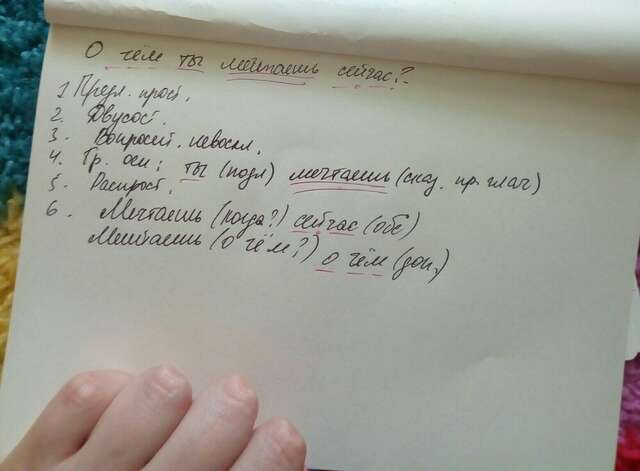 О чём ты мечтаешь сейчас?
1 Предл. прост.
2. Двусост.
3. Вопросит. невоскл.
4. Гр. осн: ты (подл) мечтаешь (сказ. пр. глаг)
5. Распрост.
6. Мечтаешь (когда?) сейчас (обс)
Мечтаешь (о чём?) о чём (доп,)